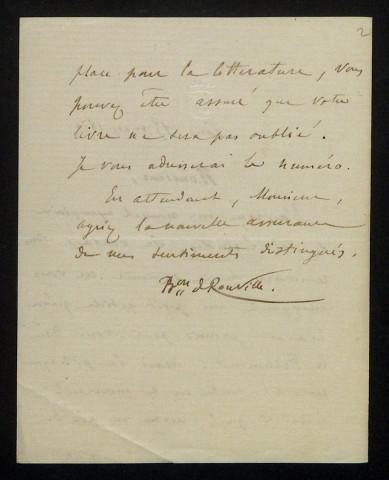 2
place pour la litterature, vous
pouvez être assuré que votre
livre ne sera pas oublié.
Je vous adresserai le numéro.
En attendant, Monsieur,
agréez la nouvelle assurance
de mes sentiments distingués.
Bon de Rouville.